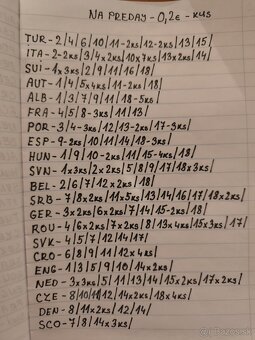 NA PREDAJ - 0,2€ - KUS
TUR - 2/4/6/10/11-2ks/12-2ks/13/15/
ITA - 2-2ks/3/4x2ks/10x7ks/13x2ks/14/
SUI - 1x3ks/2/9/11/16/18/
AUT - 1/4/5x4ks/11-2ks/18/
ALB - 1/3/7/9/11/18-5ks
FRA - 4/5/8-3ks/11/13/
POR - 3/4-3ks/12/13-2ks/17-3ks/
ESP - 9-2ks/10/11/14/18-3ks/
HUN - 1/9/10-2ks/11/15-4ks/18/
SVN - 1x3ks/2x2ks/5/8/9/17/18x3ks/
BEL - 2/6/7/12x2ks/18/
SRB - 7/8x2ks/11x5ks/13/14/16/17/18x2ks/
GER - 3x2ks/6x2ks/7/14/15-2ks/18/
ROU - 4/6x2ks/7x2ks/8/13x4ks/15x3ks/17/
SVK - 4/5/7/12/14/17/
CRO - 6/8/9/11/12x4ks/
ENG - 1/3/5/9/10/14x2ks/
NED - 3x3ks/5/11/13/14/15x2ks/17x2ks/
CZE - 8/10/11/12/14x2ks/18x4ks/
DEN - 8/11x2ks/12/14/
SCO - 7/8/14x3ks/